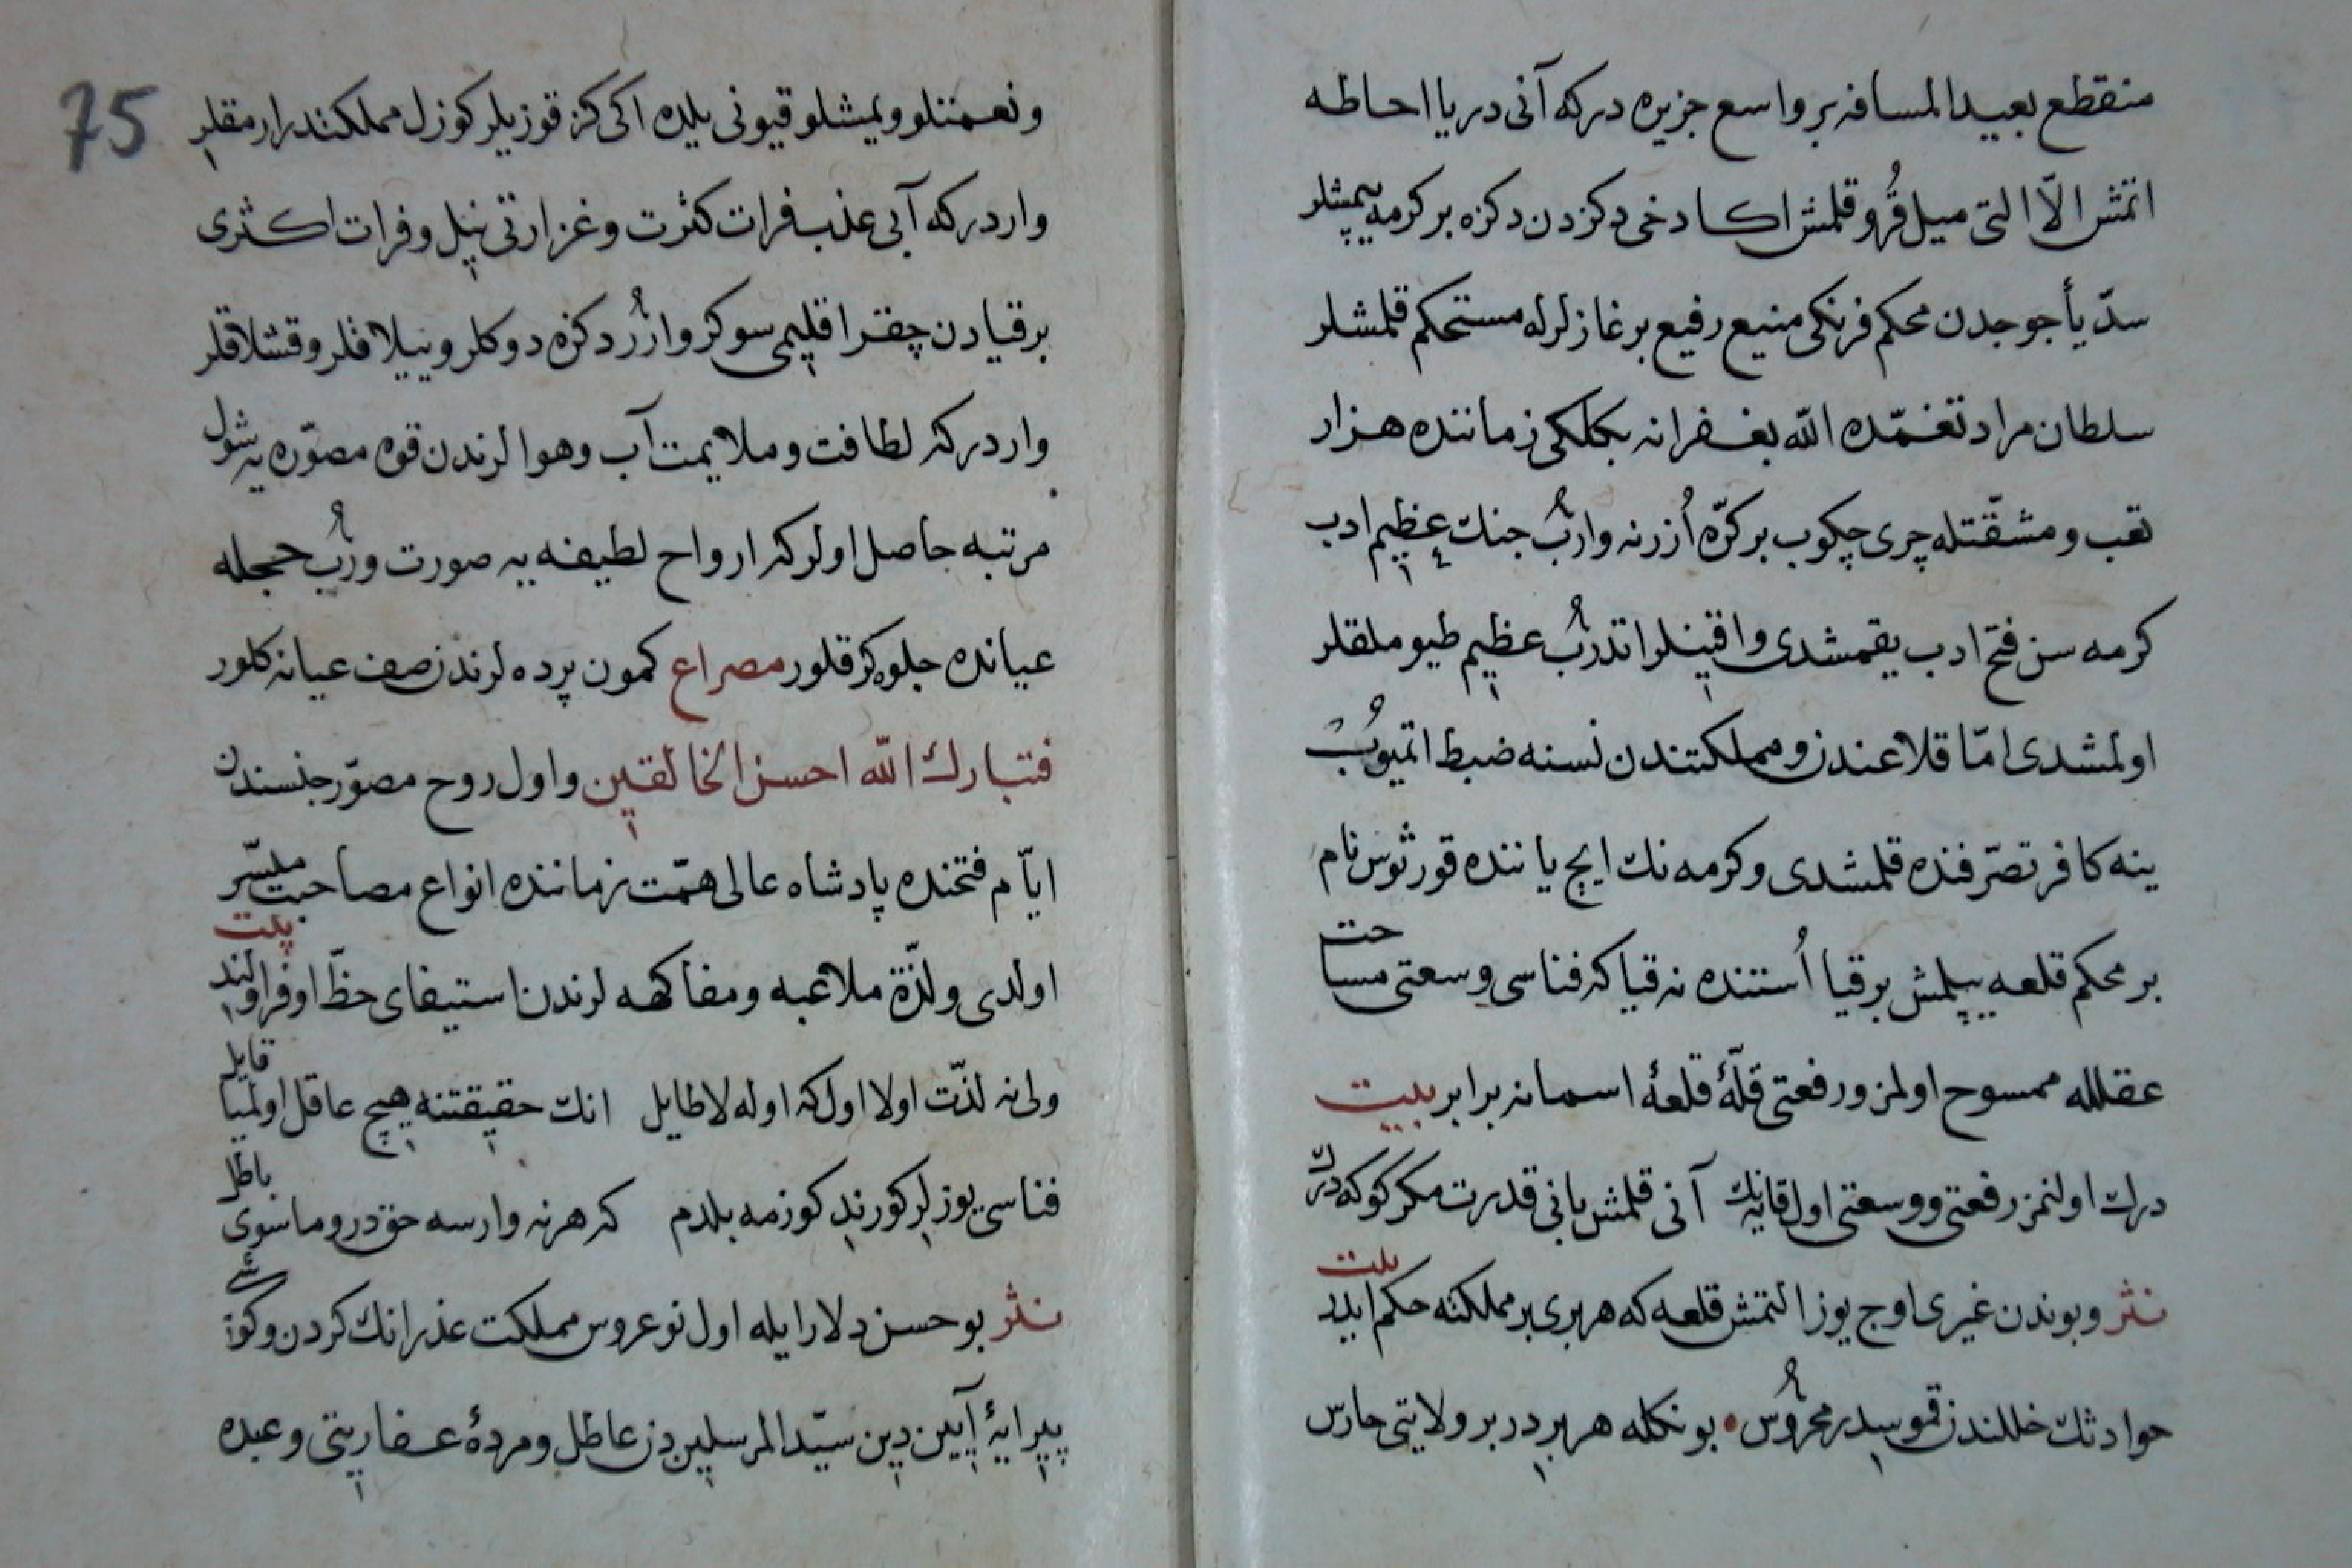 منقطع بعید المسافه بر واسع جزیره در که آنی دریا احاطه
اتمش الّا التی میل قُرو قلمش اکا دخی دکزدن دکزه بر کرمه یپمشلر
سدّ یأجوجدن محکم فرنکی منیع رفیع برغازلرله مستحکم قلمشلر
سلطان مراد تغمّده الله بغفرانه بکلکی زماننده هزار
تعب و مشقّتله چری چکوب بر کرّه اُزرنه وارُب جنك عظیم ادب
کرمه سن فتح ادب یقمشدی واقینلر اتدرُب عظیم طیوملقلر
اولمشدی امّا قلاعندن و مملکتندن نسنه ضبط اتمیوُب
ینه کافر تصرّفنده قلمشدی و کرمه نك ایچ یاننده قورثوس نام
بر محکم قلعه یپلمش بر قیا اُستنده نه قیا که فناسی وسعتی مساحت
عقلله ممسوح اولمز و رفعتی قلّهٔ قلعهٔ اسمانه برابر بیت
درك اولنمز رفعتی و وسعتی اول قایه نك آنی قلمش بانی قدرت مکر کوکه درك
نثر و بوندن غیری اوچ یوز التمش قلعه که هر بری بر مملکته حکم ایدر بیت
حوادثك خللندن قموسیدر محرُوس • بونکله هر بر در بر ولایتی حارس
75
و نعمتلو و یمشلو قیونی یلده اکی کز قوزیلر کوزل مملکتدر ارمقلر
وار در که آبی عذب فرات کثرت و غزارتی نیل و فرات اکثری
بر قیادن چقر اقلیمی سوکر وارُر دکزه دوکلر و ییلاقلر و قشلاقلر
وار در که لطافت و ملایمت آب و هوالرندن قوه مصوّره یه شول
مرتبه حاصل اولر که ارواح لطیفه یه صورت ورُب حجله
عیانده جلوه کر قلور مصراع کمون پرده لرندن صف عیانه کلور
فتبارك الله احسن الخالقین و اول روح مصوّر جنسندن
ایّام فتحنده پادشاه عالی همّت زماننده انواع مصاحبت میسّر
اولدی و لذّة ملاعبه و مفاکهه لرندن استیفای حظّ اوفر اولندی بیت
ولی نه لذّت اولا اول که اوله لا طایل انك حقیقتنه هیچ عاقل اولمیا قایل
فناسی یوزلر کورندی کوزمه بلدم که هر نه وارسه حق در و ما سوی باطل
نثر بو حسن دلارایله اول نو عروس مملکت عذرانك کردن و کوشی
پیرایهٔ آیین دین سیّد المرسلین دن عاطل و مردهٔ عفاریتی و عبده